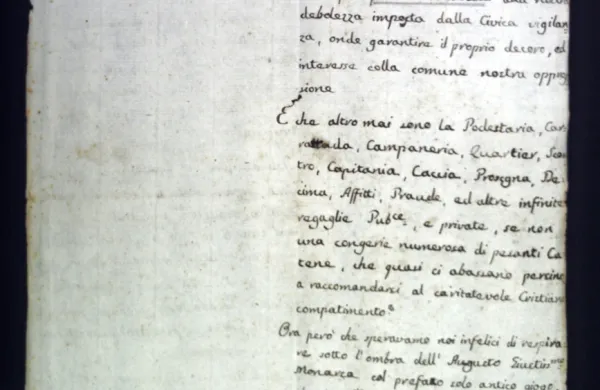 debolezza imposta dalla Civica vigilan
za, onde garantire il proprio decoro, ed
interesse colla comune nostra oppres
sione
E che altro mai sono la Podestaria, Car
rattada, Campaneria, Quartier, Scon
tro, Capitania, Caccia, Prosegna, De
cima, Affitti, Fraude, ed altre infinite
regaglie Pubce, e private, se non
una congerie numerosa di pesanti Ca
tene, che quasi ci abassano persino
a raccomandarsi al caritatevole Cristiano
compatimento
Ora però che speravamo noi infelici di respira
re sotto l'ombra dell' Augusto
Monarca col prefato solo antico